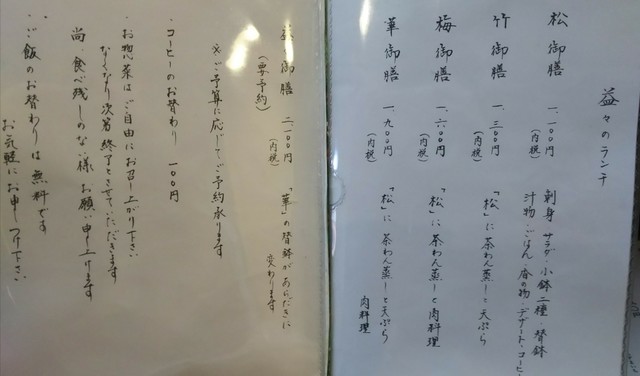 益々のランチ
松御膳 一、一〇〇円 (内税) 刺身 サラダ・小鉢二種・替鉢
汁物・ごはん 香の物・デザート・コーヒー
竹御膳 一、三〇〇円 (内税) 「松」に茶わん蒸しと天ぷら
梅御膳 一、六〇〇円 (内税) 「松」に茶わん蒸しと肉料理
華御膳 一、九〇〇円 (内税) 「松」に茶わん蒸しと天ぷら
肉料理
御膳 二、一〇〇円 「華」の替鉢があらだきに
(要予約) (内税) 変わります
※ご予算に応じてご予約承ります
・コーヒーのお替わり 一〇〇円
・お惣菜はご自由にお召し上がり下さい
なくなり次第終了とさせていただきます
尚 食べ残しのない様 お願い申し上げます
・ご飯のお替わりは無料です
お気軽にお申しつけ下さい